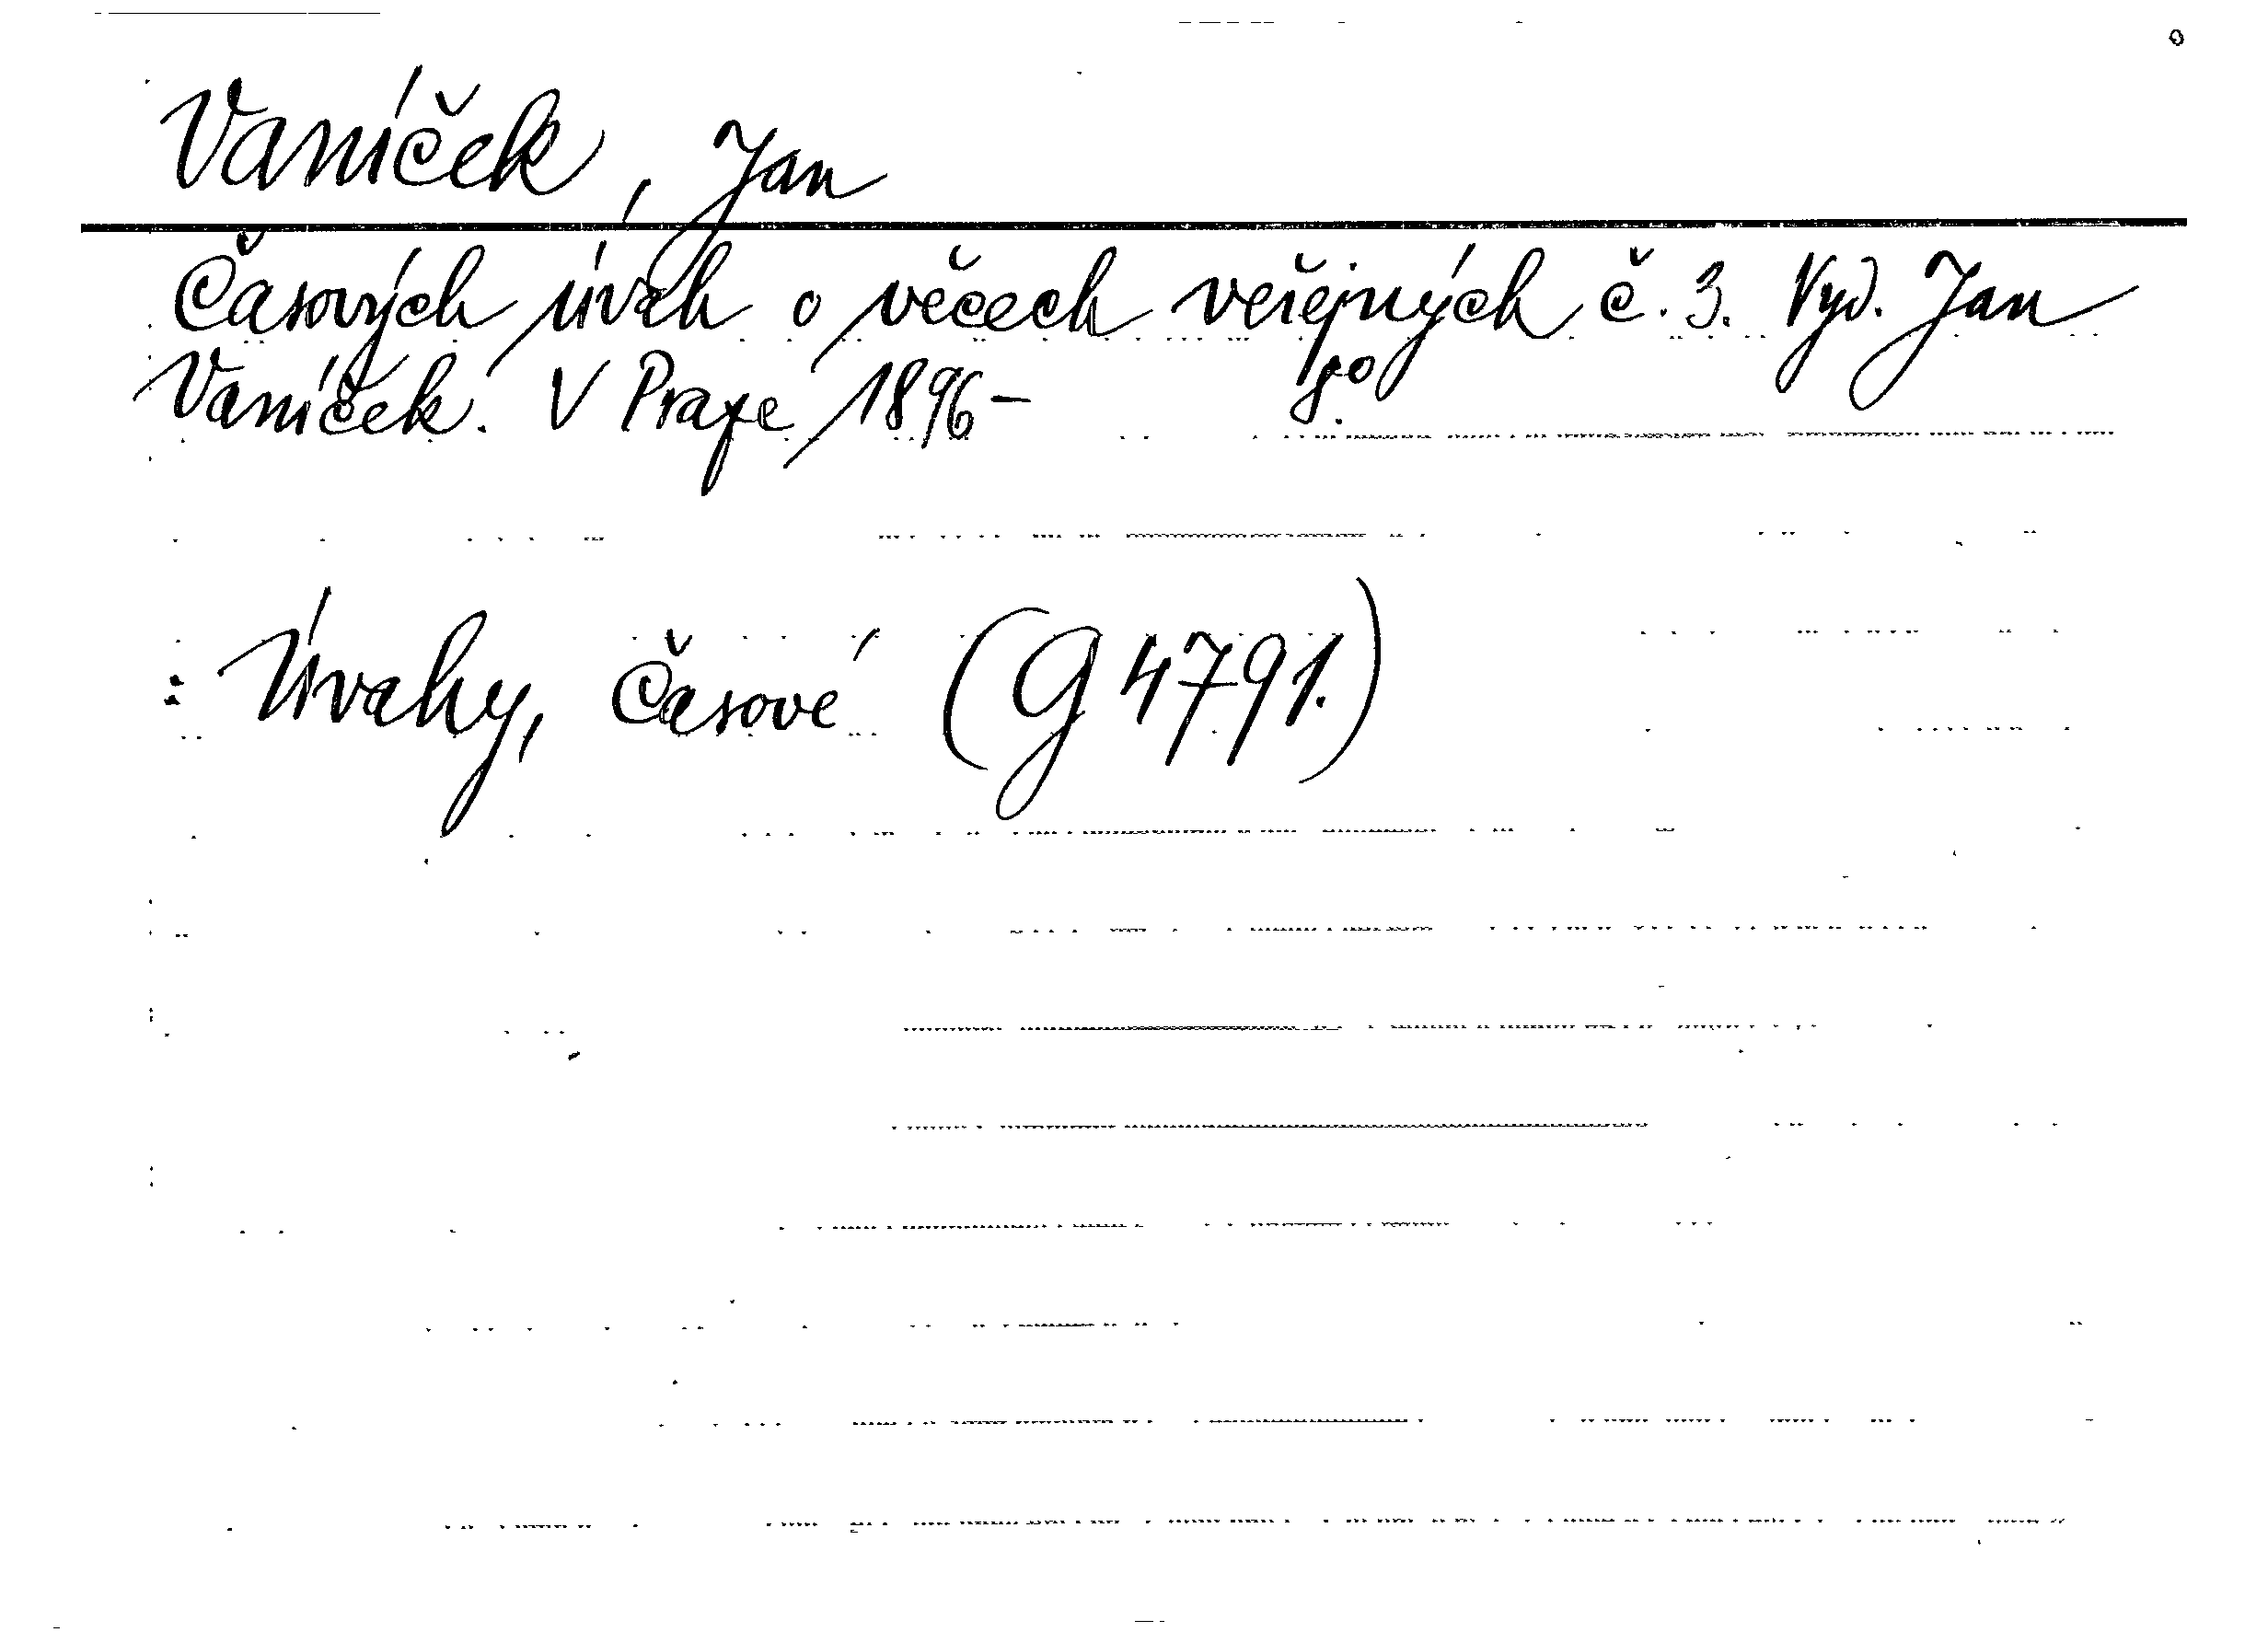 Vaníček, Jan
Časových úvah o věcech veřejných č. 3. Vyd. Jan
Vaníček. V Praze, 1896- 8º.
: Úvahy, časové (G 4791.)